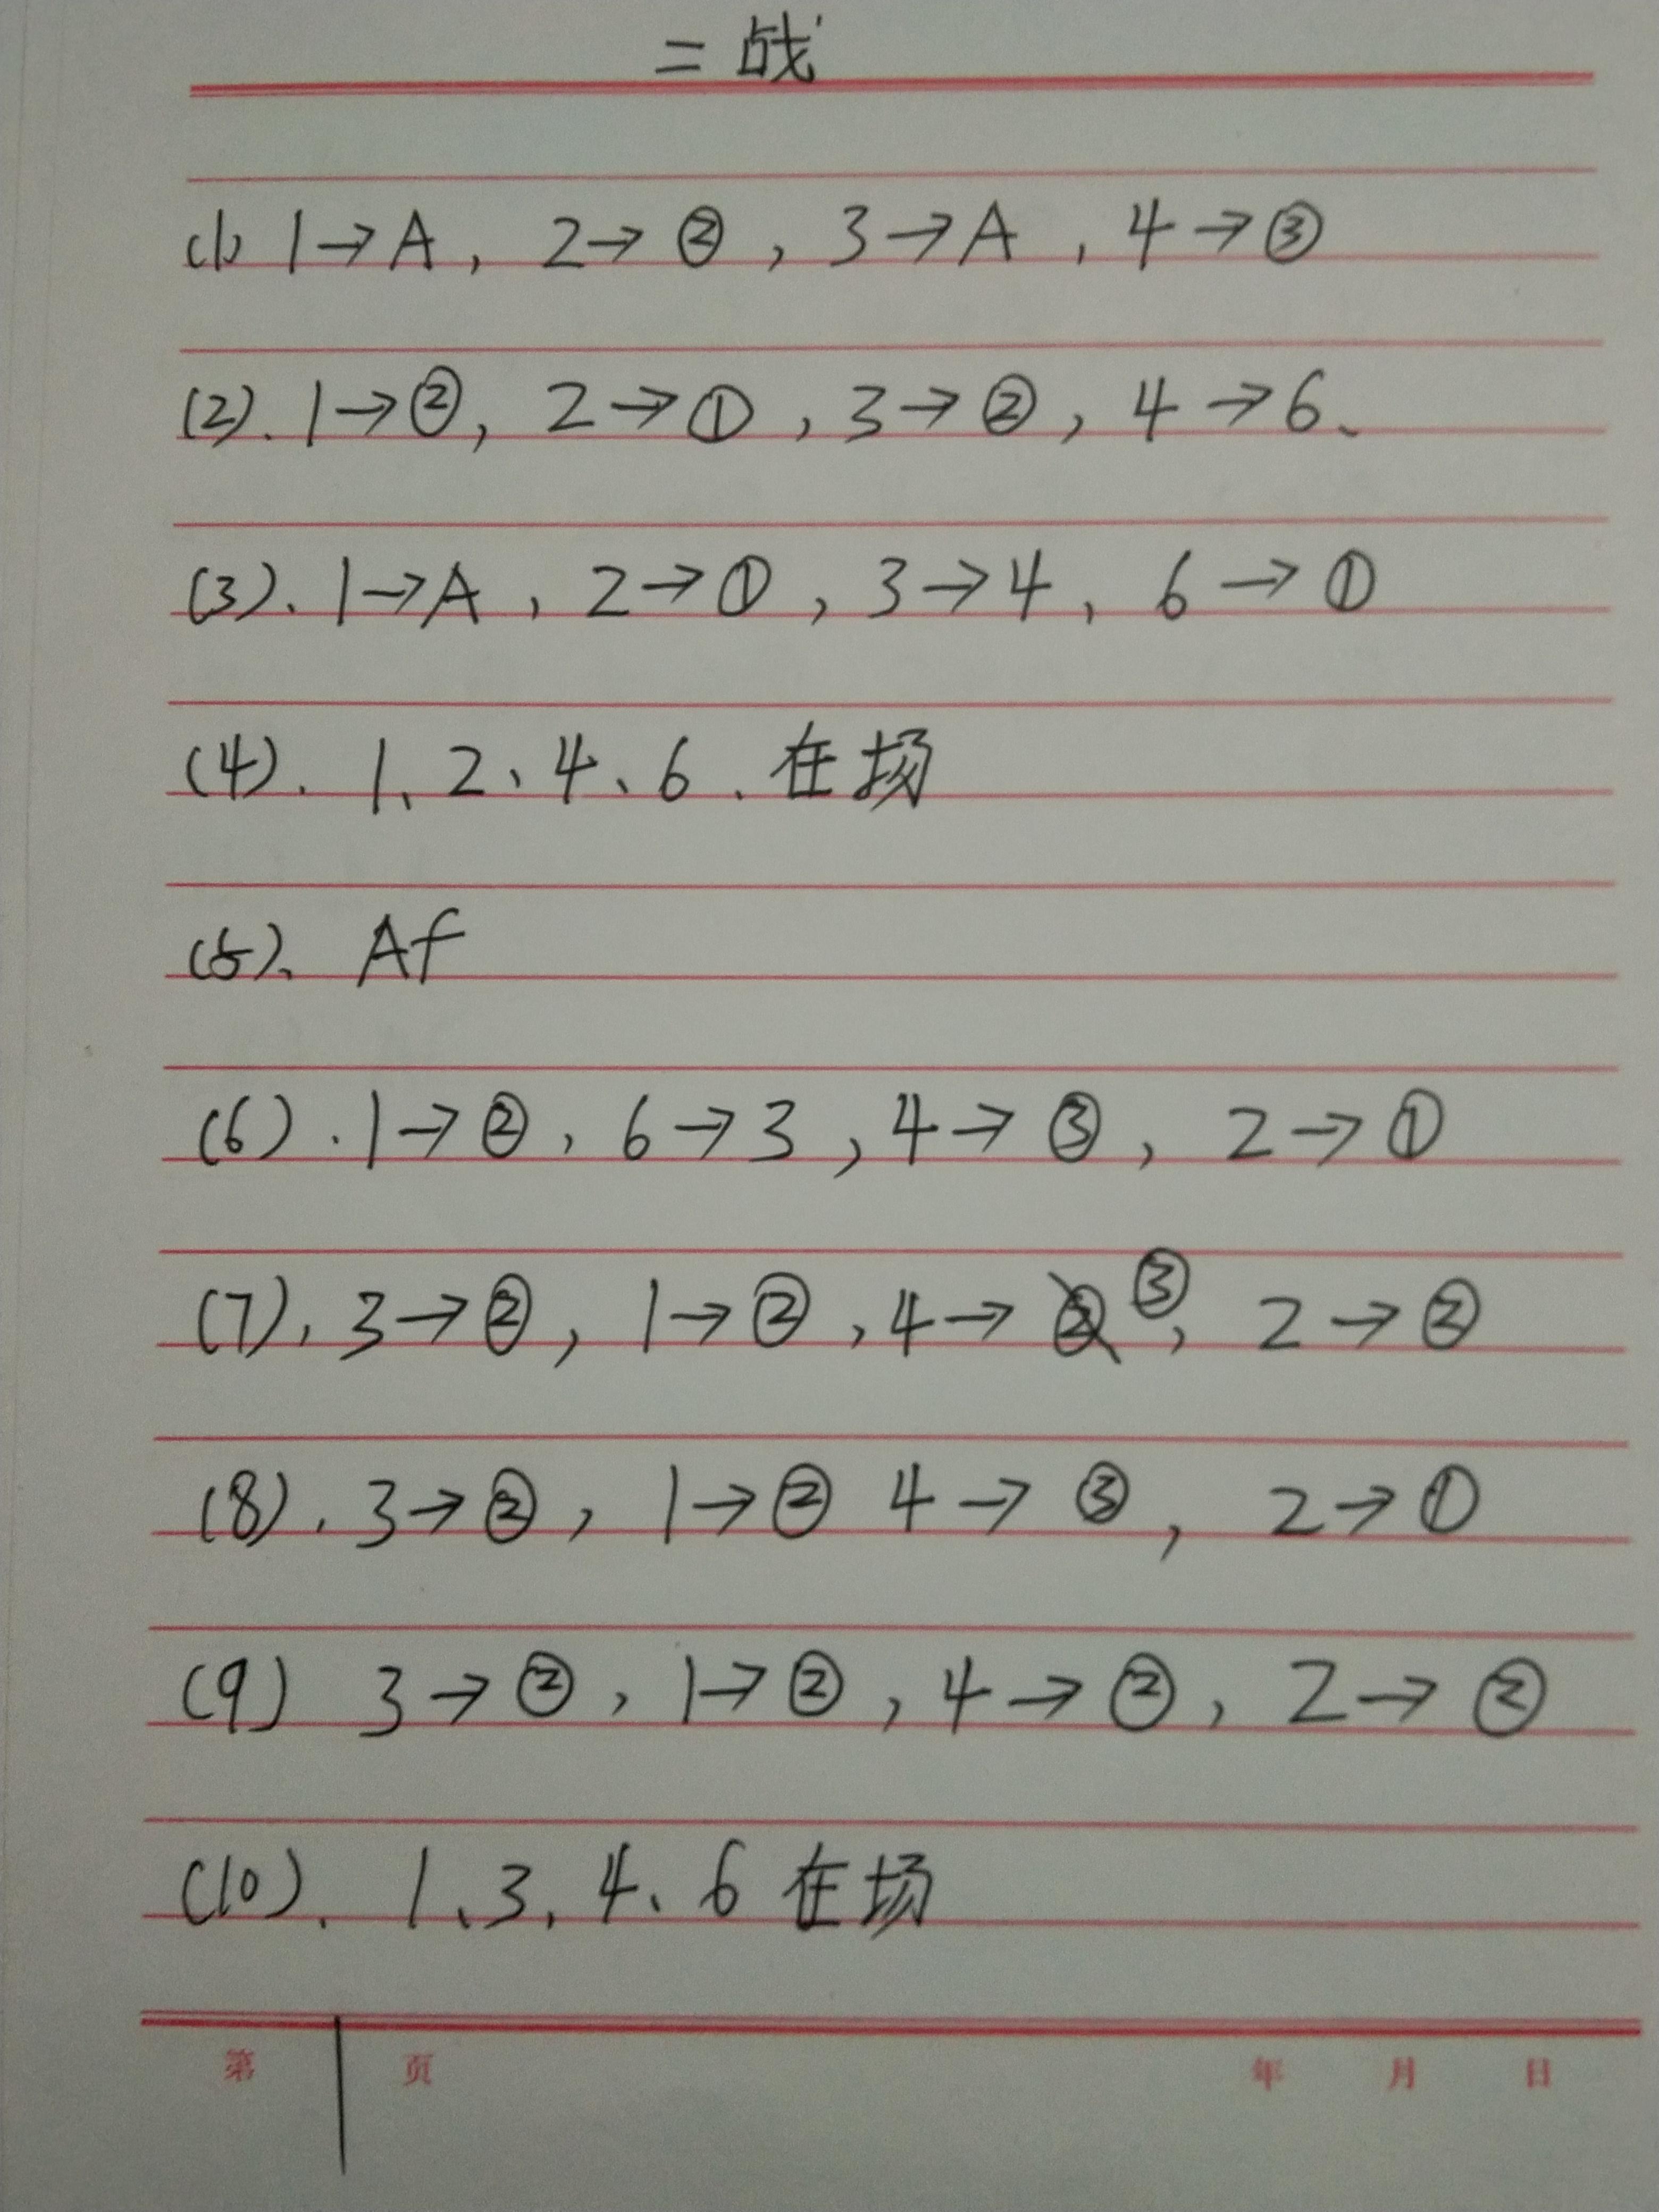 二战
(1) 1→A, 2→②, 3→A, 4→③
(2). 1→②, 2→①, 3→②, 4→6、
(3)、1→A, 2→①, 3→4, 6→①
(4). 1、2、4、6、在场
(5)、Af
(6).1→②, 6→3, 4→③, 2→①
(7), 3→②, 1→②, 4→③, 2→②
(8). 3→②, 1→② 4→③, 2→①
(9) 3→②, 1→②, 4→②, 2→②
(10). 1、3、4、6 在场
第 1 页 年 月 日